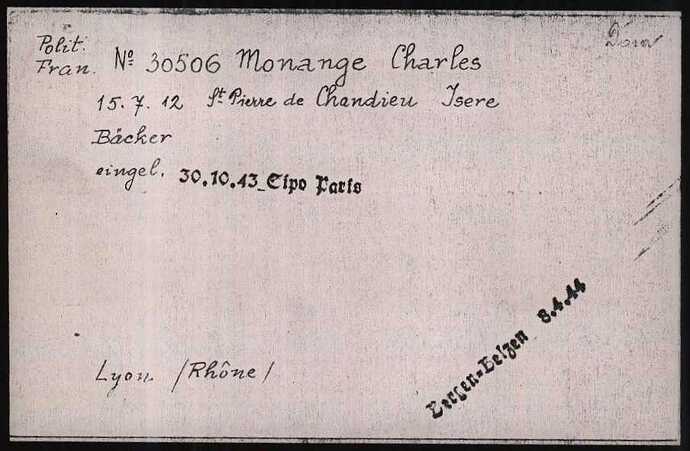 Polit.
Fran. Nº 30506 Monange Charles
Dora
15. 7. 12 St Pierre de Chandieu Isere
Bäcker
eingel. 30.10.43_Sipo Paris
Bergen-Belzen 8.4.44
Lyon /Rhône/